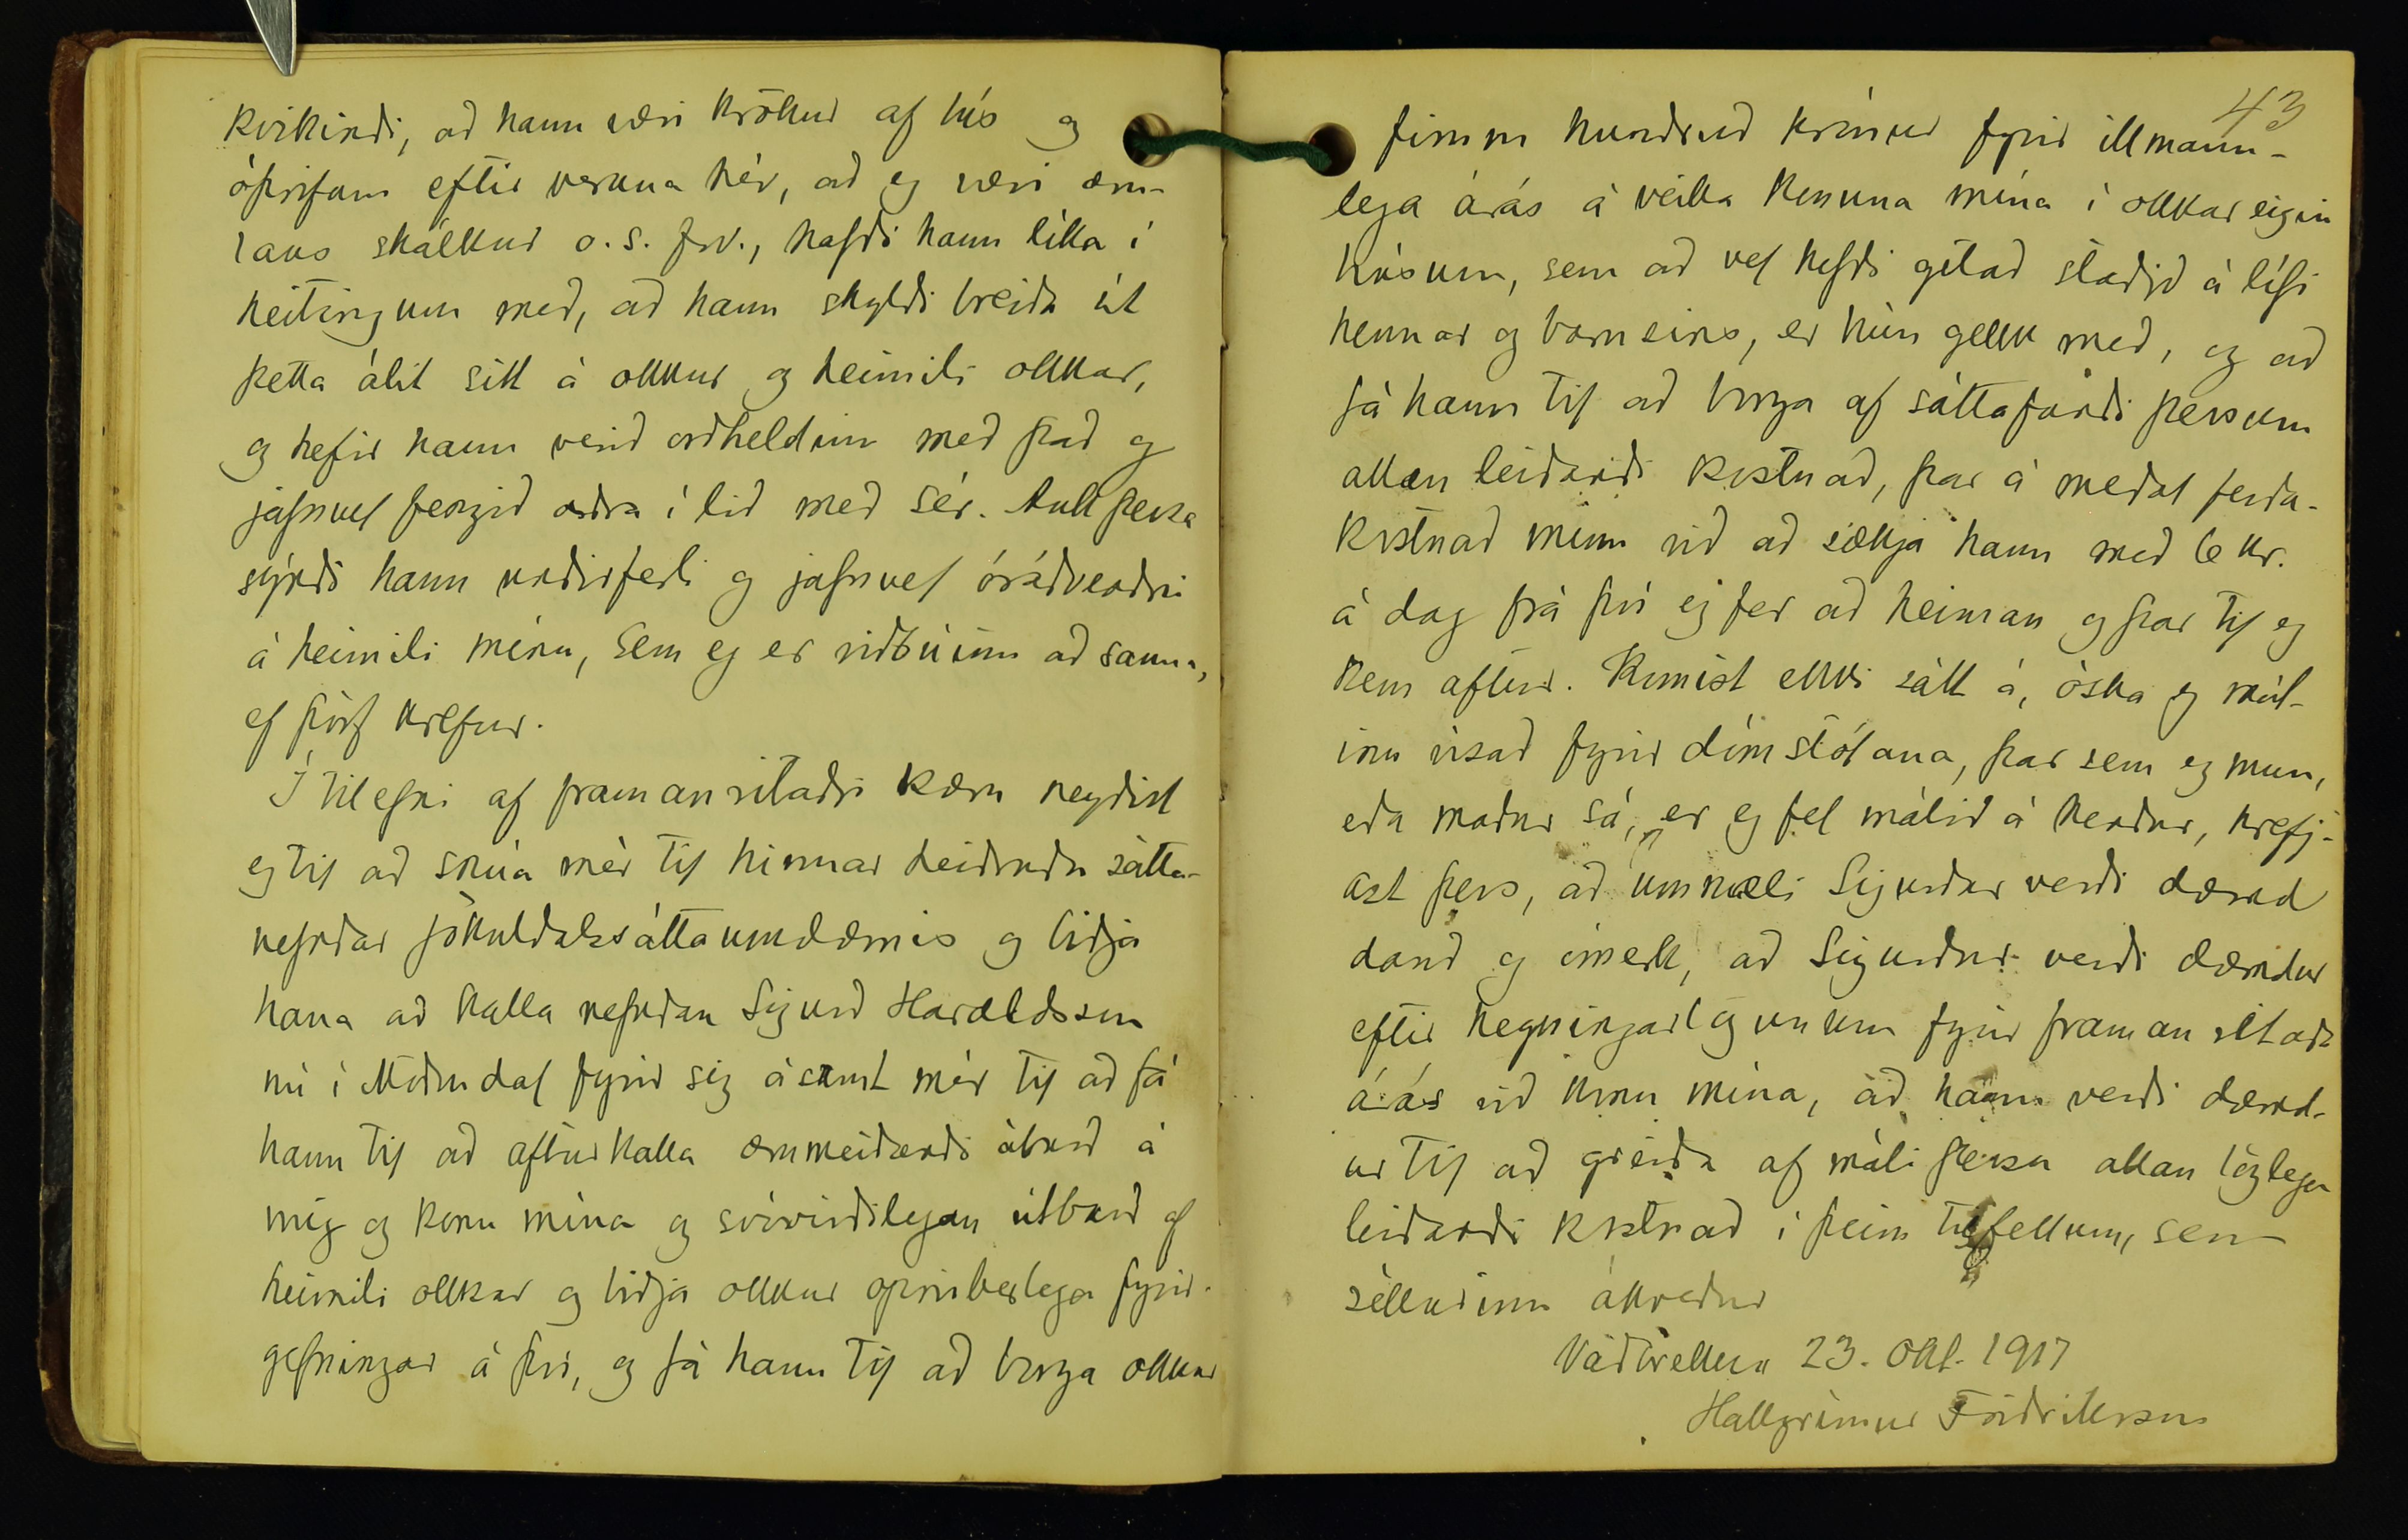 kvikindi, að hann væri krökur af lús og
óþrifum eftir veruna hér, að eg væri æru-
laus skálkur o. s. frv., hafði hann líka í
heitingum með, að hann skyldi breiða út
þetta álit sitt á okkur og heimili okkar,
og hefir hann verið orðheldinn með það og
jafnvel fengið aðra í lið með sér. Auk þessa
sýndi hann undirferli og jafnvel óráðvendni
á heimili mínu, sem eg er viðbúinn að sanna,
ef þörf krefur.
Í tilefni af framanritaðri kæru neyðist
eg til að snúa mér til hinnar heiðruðu sátta-
nefndar Jökuldalssáttaumdæmis og biðja
hana að kalla nefndan Sigurð Haraldsson
nú í Möðrudal fyrir sig ásamt mér til að fá
hann til að afturkalla ærumeiðandi áburð á
mig og konu mína og svívirðilegan útburð af
heimili okkar og biðja okkur opinberlega fyrir-
gefningar á því, og fá hann til að borga okkur
43
fimm hundruð krónur fyrir illmann-
lega árás á veika konuna mína í okkar eigin
húsum, sem að vel hefði getað staðið á lífi
hennar og barnsins, er hún gekk með, og að
fá hann til að borga af sáttafundi þessum
allan leiðandi kostnað, þar á meðal ferða-
kostnað minn við að sækja hann með 6 kr.
á dag frá því eg fer að heiman og þar til eg
kem aftur. Komist ekki sátt á, óska eg mál-
inu vísað fyrir dómstólana, þar sem eg mun,
eða maður sá, er eg fel málið á hendur, krefj-
ast þess, að ummæli Sigurðar verði dæmd
dauð og ómerk, að Sigurður verði dæmdur
eftir hegningarlögunum fyrir framanritaða
árás við konu mína, að hann verði dæmd-
ur til að greiða af máli þessu allan löglega
leiðandi kostnað í þeim tilfellum, sem
sækjandinn ákveður
Vaðbrekku 23. okt. 1917
Hallgrímur Friðriksson